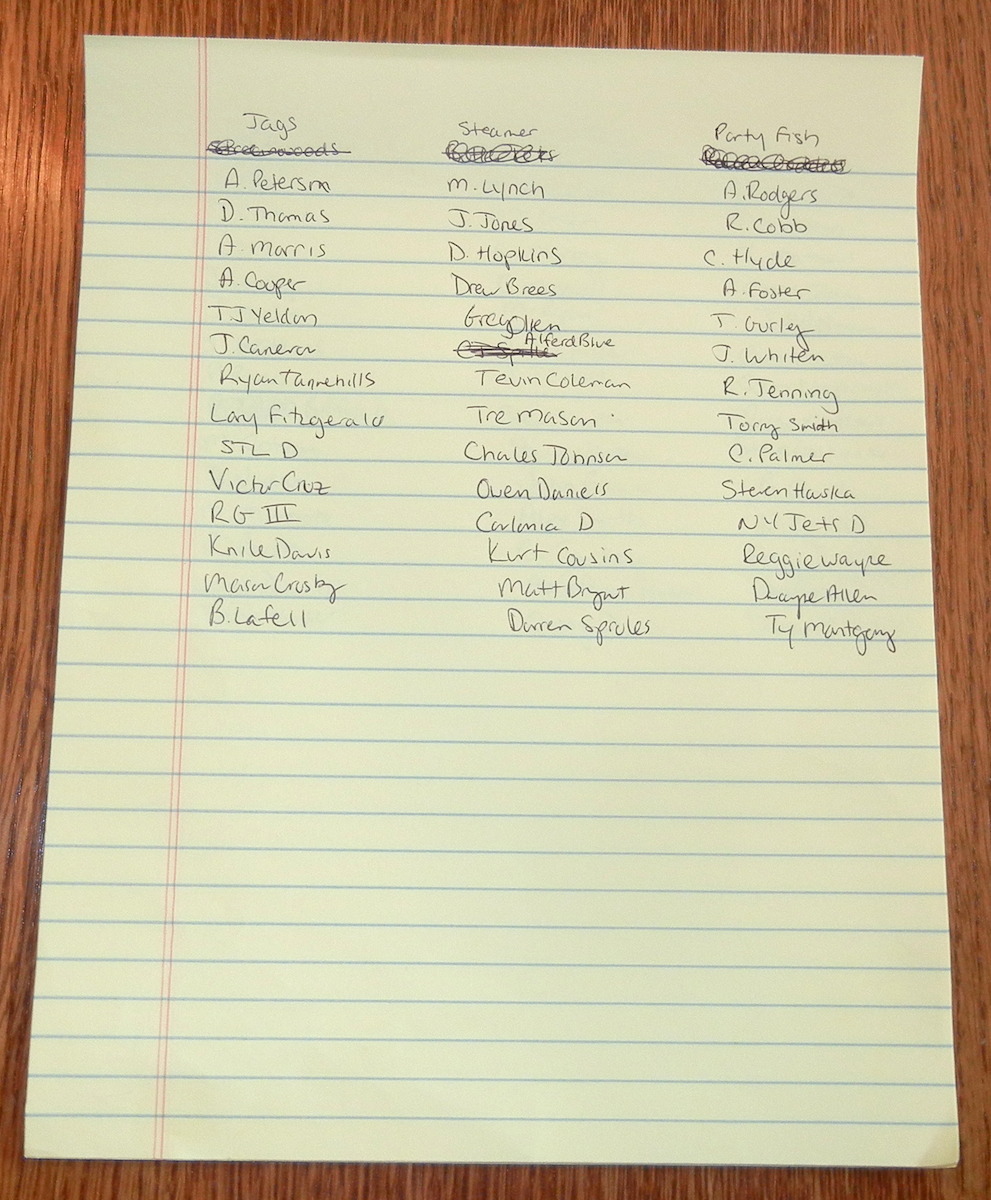 Jags Steamer Party Fish
A. Peterson M. Lynch A. Rodgers
D. Thomas J. Jones R. Cobb
A. Morris D. Hopkins C. Hyde
A. Cooper Drew Brees A. Foster
TJ Yeldon Greg Olsen T. Gurley
J. Cameron Alferd Blue J. Whiten
Ryan Tannehills Tevin Coleman R. Jenning
Larry Fitzgerald Tre Mason Torry Smith
STL D Charles Johnson C. Palmer
Victor Cruz Owen Daniels Steven Hauska
RG III Carolina D NY Jets D
Knile Davis Kurt Cousins Reggie Wayne
Mason Crosby Matt Bryant Dwayne Allen
B. Lafell Darren Sproles Ty Montgomery